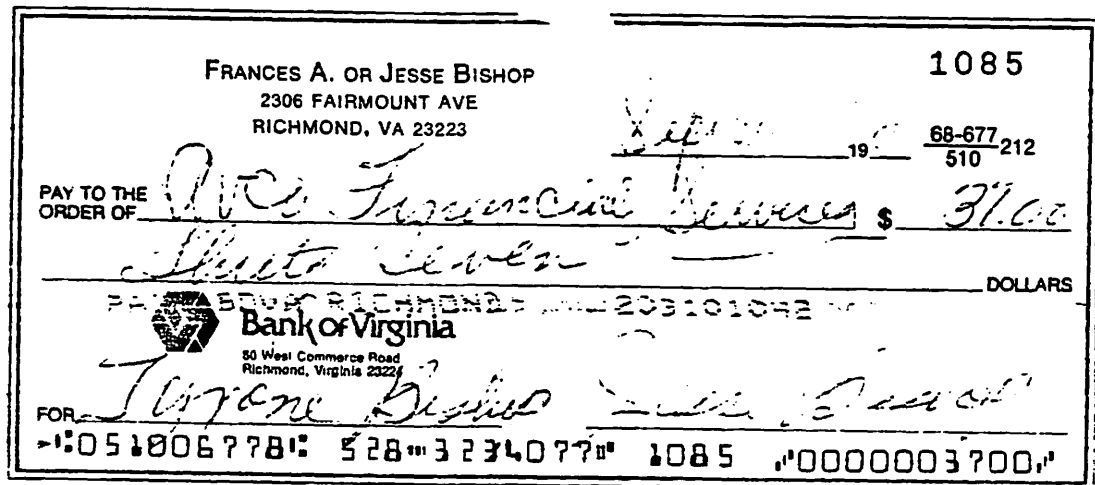 1085
FRANCES A. OR JESSE BISHOP
2306 FAIRMOUNT AVE
RICHMOND, VA 23223
19
68-677
510
212
PAY TO THE
ORDER OF Avco Financial Services $ 37.00
Seven
DOLLARS
RICHMOND 203101042
Bank of Virginia
50 West Commerce Road
Richmond, Virginia 23224
FOR Tyrone Bishop
⑆051006778⑆ 528⑉3234077⑈ 1085 ⑇0000003700⑇